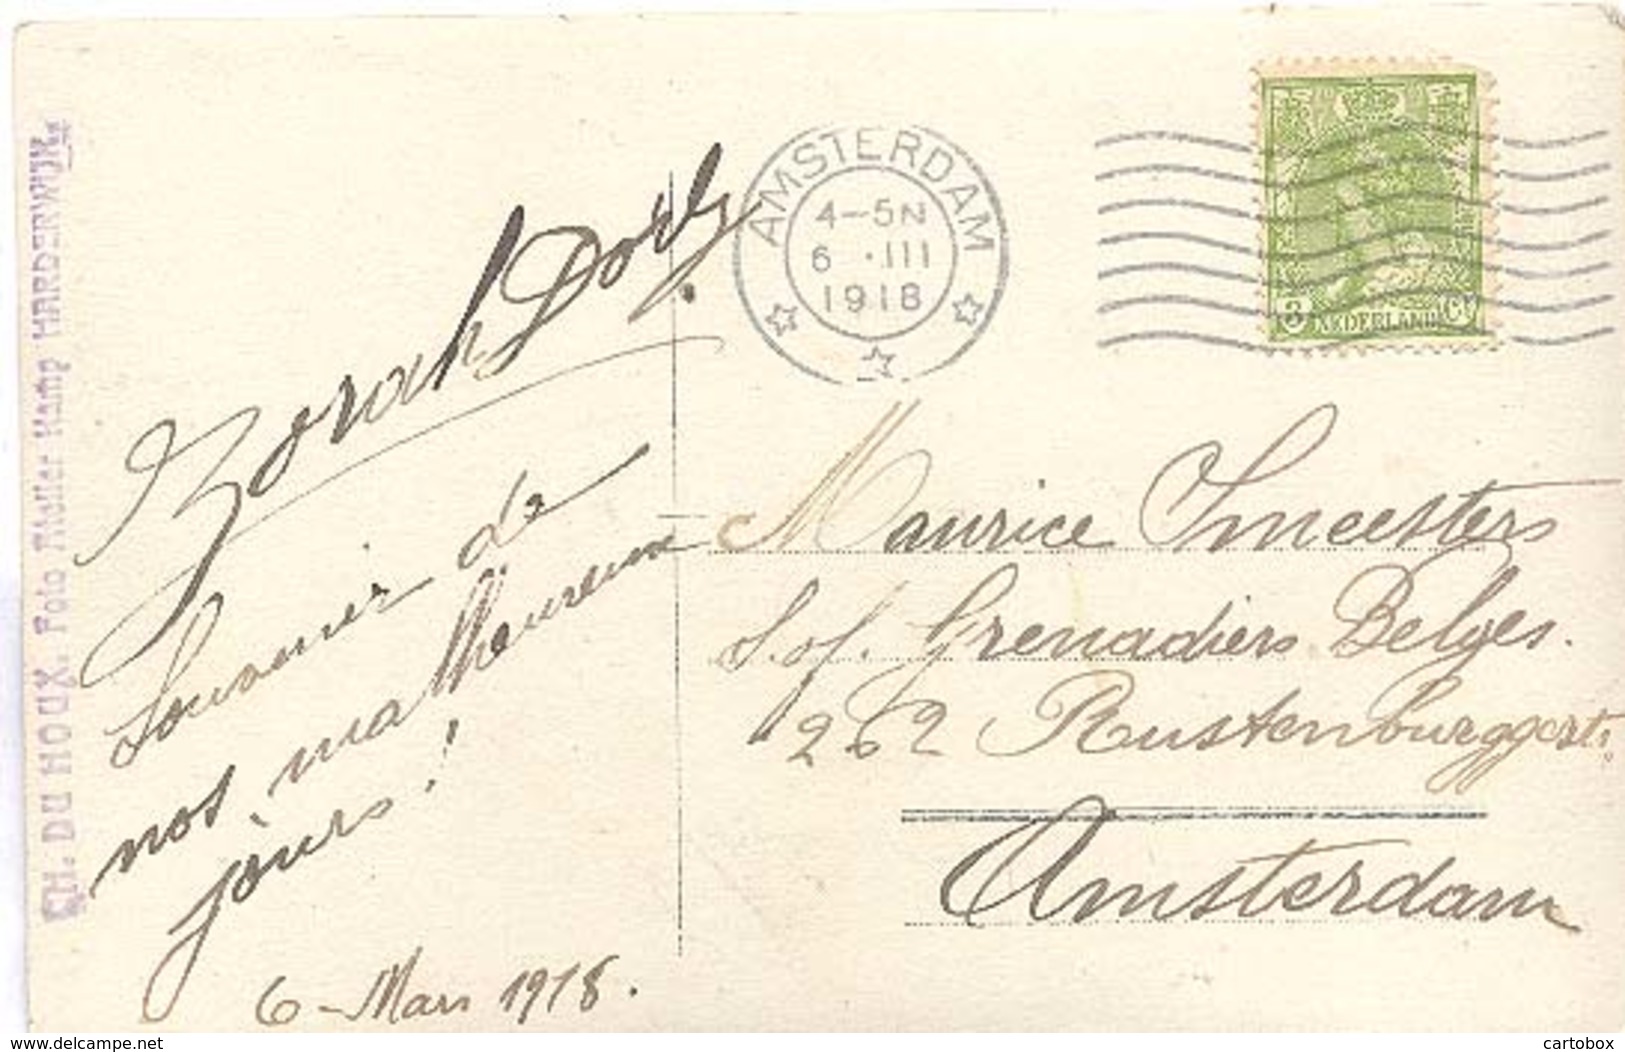 CH. DU HOUX. Foto Atelier Kamp HARDERWIJK.
Souvenir de
nos malheureux
jours!
6 - Mars 1918.
AMSTERDAM
4-5N
6 .III
1918
3 NEDERLAND Ct
Maurice Smeesters
S.of. Grenadiers Belges.
262 Rustenburggerstr.
Amsterdam
www.delcampe.net
cartobox